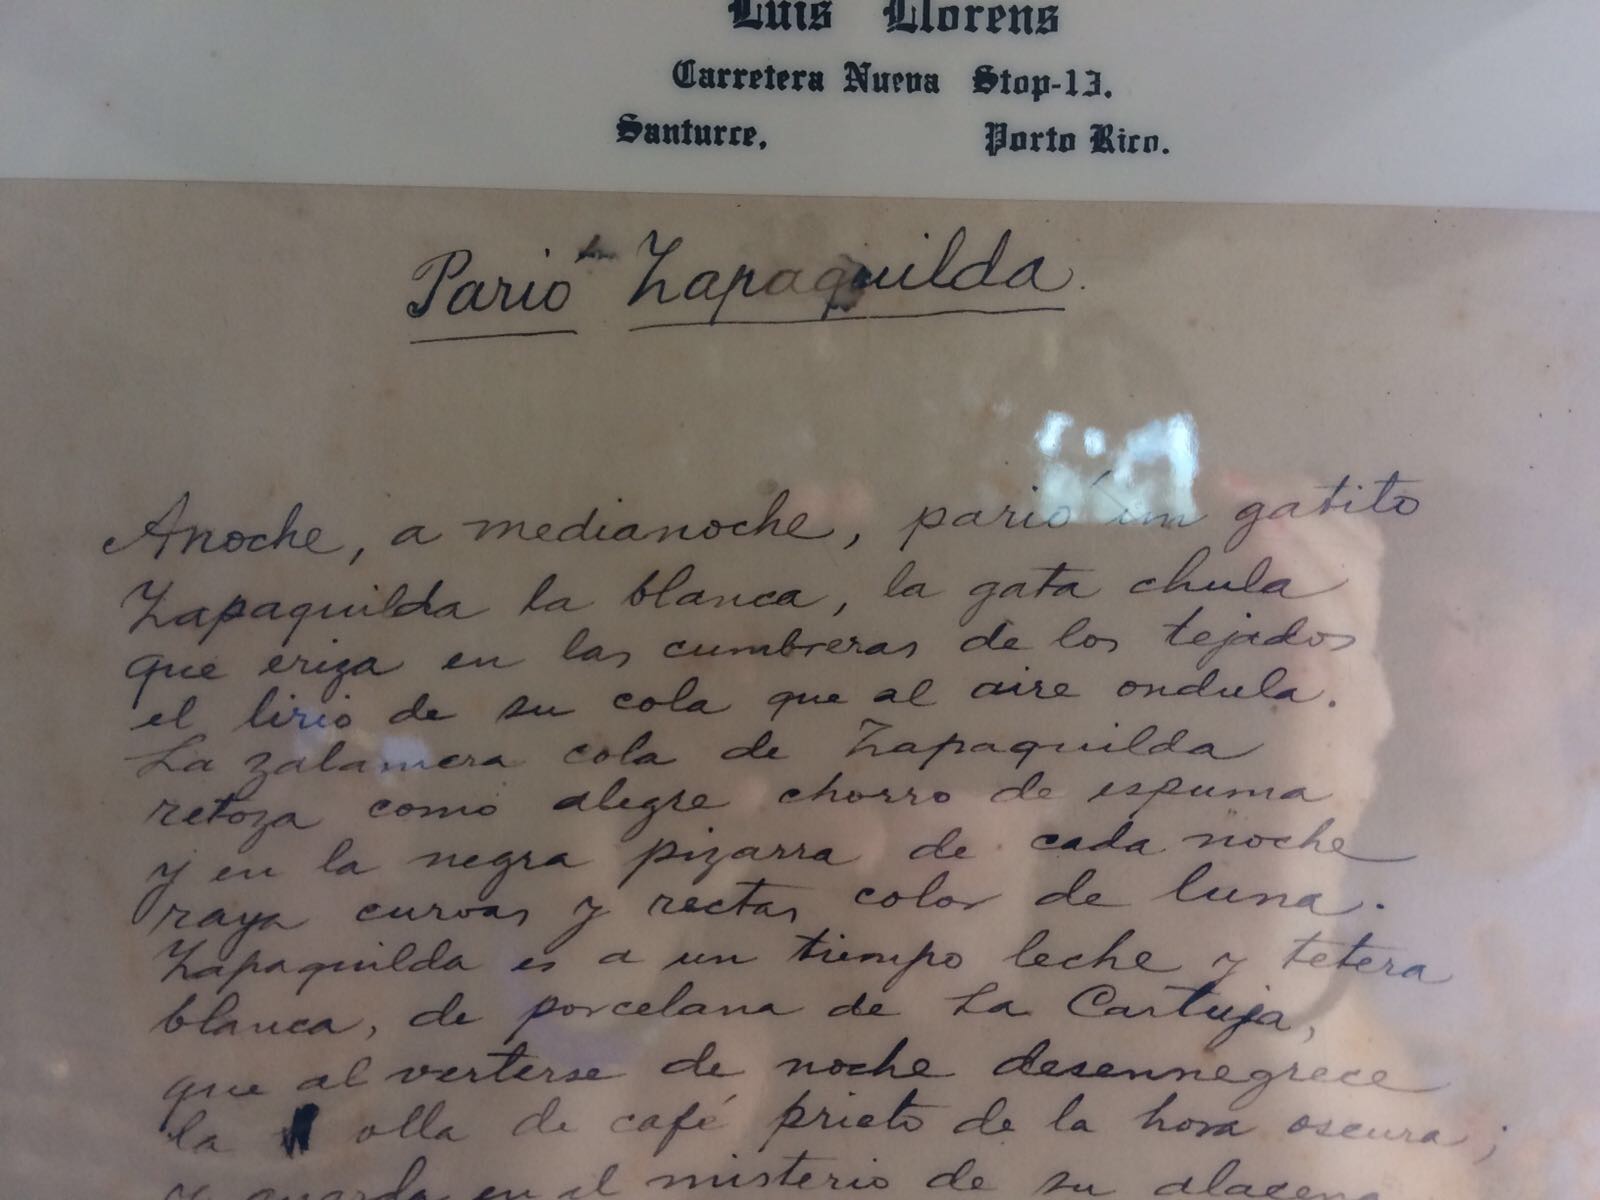 Luis Llorens
Carretera Nueva Stop-13.
Santurce, Porto Rico.
Parió Zapaquilda.
Anoche, a medianoche, parió un gatito
Zapaquilda la blanca, la gata chula
que eriza en las cumbreras de los tejados
el lirio de su cola que al aire ondula.
La zalamera cola de Zapaquilda
retoza como alegre chorro de espuma
y en la negra pizarra de cada noche
raya curvas y rectas color de luna.
Zapaquilda es a un tiempo leche y tetera
blanca, de porcelana de La Cartuja,
que al verterse de noche desennegrece
la olla de café prieto de la hora oscura;
y guarda en el misterio de su alacena